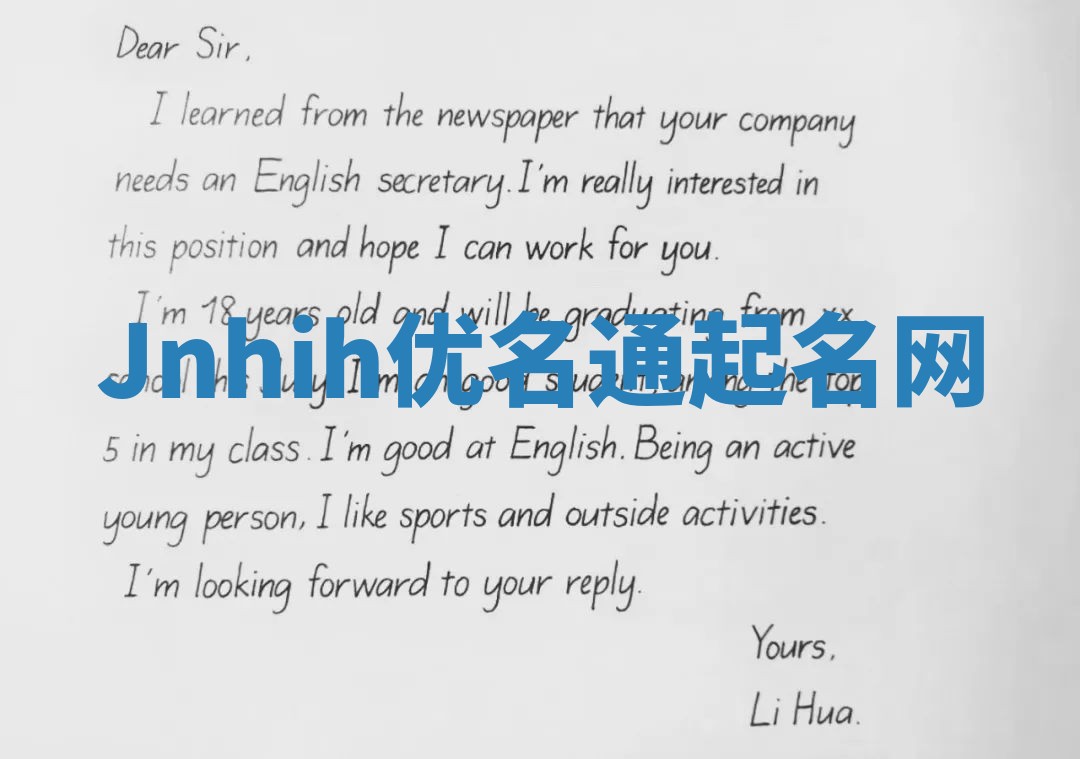 Dear Sir,
I learned from the newspaper that your company
needs an English secretary. I'm really interested in
this position and hope I can work for you.
I'm 18 years old and will be graduating from xx
Jnhih优名通起名网
school this July. I'm a good student, among the top
5 in my class. I'm good at English. Being an active
young person, I like sports and outside activities.
I'm looking forward to your reply.
Yours,
Li Hua.